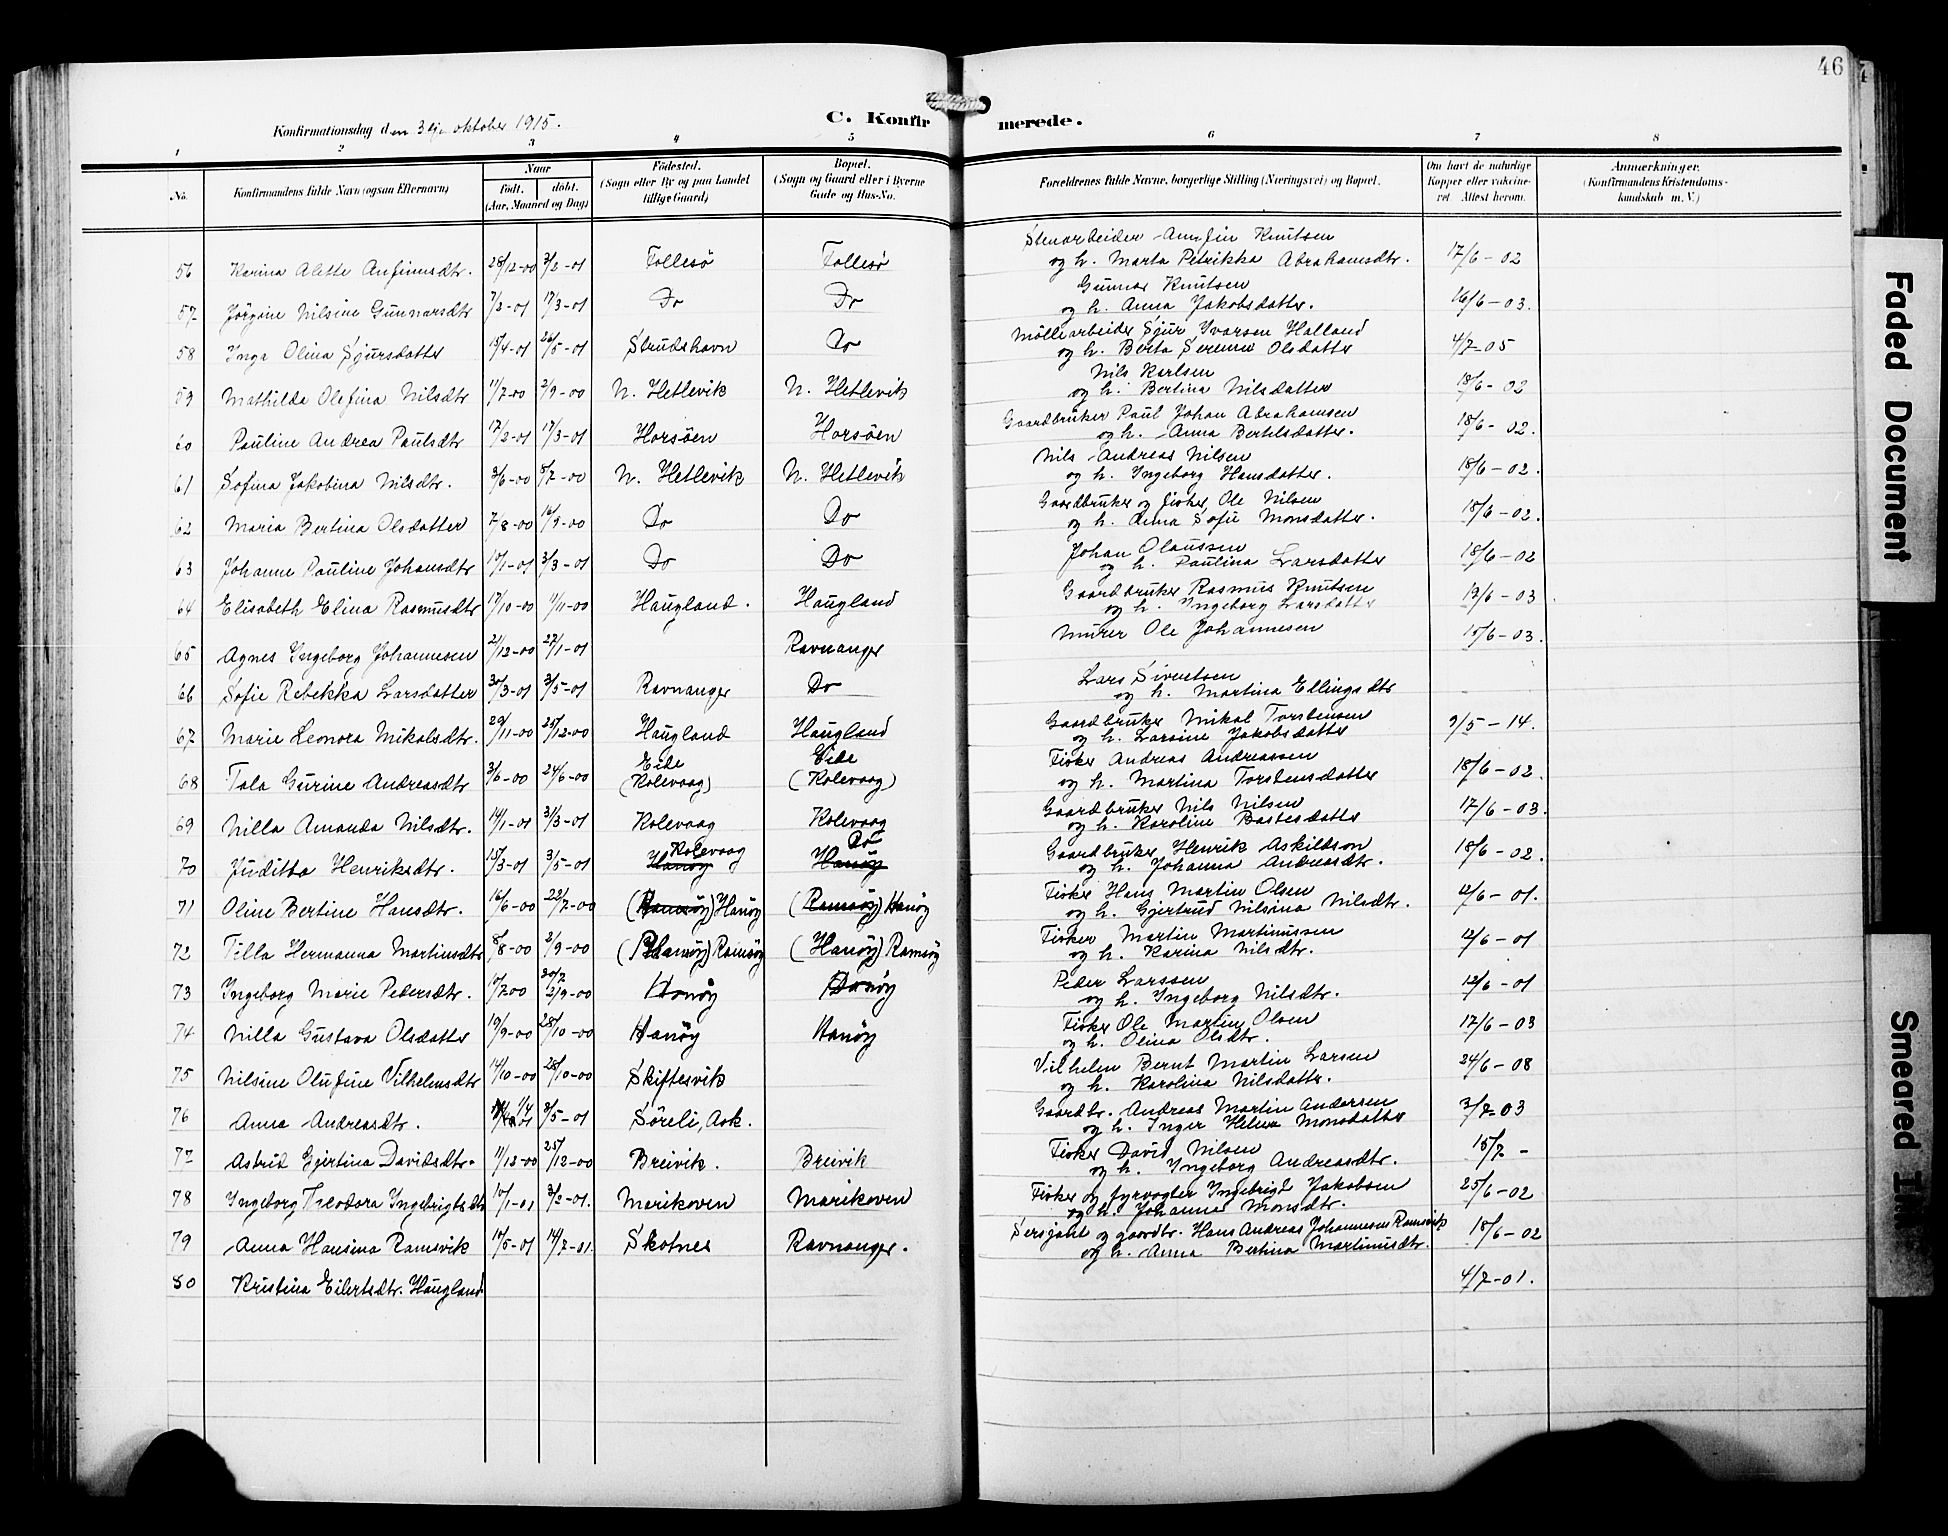 46
Konfirmationsdag den 3dje oktober 1915.
C. Konfirmerede.
1 2 3 4 5 6 7 8
No. Konfirmandens fulde Navn (ogsaa Efternavn) Naar født. døbt. (Aar, Maaned og Dag) Fødested. (Sogn eller By og paa Landet tillige Gaard) Bopæl. (Sogn og Gaard eller i Byerne Gade og Hus-No. Forældrenes fulde Navne, borgerlige Stilling (Næringsvei) og Bopæl. Om havt de naturlige Kopper eller vakcineret. Attest herom. Anmærkninger. (Konfirmandens Kristendomskundskab m. V.)
Stenarbeider Annfin Knutsen
56 Karina Alette Anfinnsdtr. 28/12-00 3/2-01 Follesø Follesø og h. Marta Petrikka Abrahamsdtr. 17/6-02
Gunnar Knutsen
57 Jørgine Nilsine Gunnarsdtr 7/2-01 17/3-01 Do Do og h. Anna Jakobsdatter. 16/6-03.
Møllearbeider Sjur Ivarsen Halland
58 Inga Olina Sjursdatter 15/4-01 26/5-01 Strudshavn Do og h. Berta Serena Olsdatter 4/7-05
Nils Karlsen
59 Mathilda Olefina Nilsdtr 11/7-00 2/9-00 N. Hetlevik N. Hetlevik og h. Bertina Nilsdatter 18/6-02
Gaardbruker Paul Johan Abrahamsen
60 Pauline Andrea Paulsdtr 17/2-01 17/3-01 Horsøen Horsøen og h. Anna Bertelsdatter. 18/6-02.
Nils Andreas Nilsen
61 Sofina Jakobina Nilsdtr. 3/6-00 8/7-00 N. Hetlevik N. Hetlevik og h. Ingeborg Hansdatter. 18/6-02.
Gaardbruker og fisker Ole Nilsen
62 Maria Bertina Olsdatter 7/8-00 16/9-00 Do Do og h. Anna Sofie Monsdatter. 18/6-02.
Johan Olaussen
63 Johanne Pauline Johansdtr 10/1-01 3/3-01 Do Do og h. Paulina Larsdatter 18/6-02
Gaardbruker Rasmus Knutsen
64 Elisabeth Elina Rasmusdtr 17/10-00 11/11-00 Haugland. Haugland og h. Ingeborg Larsdatter 19/6-03
Murer Ole Johannesen
65 Agnes Ingeborg Johannesen 21/12-00 27/1-01 Ravnanger 15/6-03.
Lars Sivertsen
66 Sofie Rebekka Larsdatter 30/3-01 3/5-01 Ravnanger Do og h. Martina Ellingsdtr
Gaardbruker Mikal Torstensen
67 Marie Leonora Mikalsdtr. 29/11-00 25/12-00 Haugland Haugland og h. Larsine Jakobsdatter 9/5-14.
Fisker Andreas Andreassen
68 Tala Gurine Andreasdtr 3/6-00 24/6-00 Eide (Kolevaag) Eide (Kolevaag) og h. Martina Torstensdatter 18/6-02.
Gaardbruker Nils Nilsen
69 Nilla Amanda Nilsdtr. 14/1-01 31/3-01 Kolevaag Kolevaag og h. Karoline Bastesdatter 17/6-03.
Gaardbruker Henrik Askildson
70 Juditta Henriksdtr. 15/3-01 3/5-01 Hanøy Kolevaag Hanøy Do og h. Johanna Andreasdtr. 18/6-02.
Fisker Hans Martin Olsen
71 Oline Bertine Hansdtr. 16/6-00 22/7-00 (Ramsøy) Hanøy (Ramsøy) Hanøy og h. Gjertrud Nilsina Nilsdtr. 12/6-01.
Fisker Martin Martinussen
72 Tilla Hermanna Martinsdtr 8/8-00 2/9-00 (Hanøy) Ramsøy (Hanøy) Ramsøy og h. Karina Nilsdtr. 12/6-01
Peder Larssen
73 Ingeborg Marie Pedersdtr. 10/7-00 20/7 2/9-00 Hanøy Hanøy og h. Ingeborg Nilsdtr. 12/6-01
Fisker Ole Martin Olsen
74 Nilla Gustava Olsdatter 19/9-00 28/10-00 Hanøy Hanøy og h. Olina Olsdtr. 17/6-03
Vilhelm Bernt Martin Larsen
75 Nilsine Olufine Vilhelmsdtr 14/10-00 28/10-00 Skiftesvik og h. Karolina Nilsdatter. 24/6-08
Gaardbr. Andreas Martin Andersen
76 Anna Andreasdtr. 1/4 01 3/5-01 Søreli, Ask. og h. Inger Helene Monsdatter 3/7-03
Fisker David Nilsen
77 Astrid Gjertina Davidsdtr. 11/12-00 25/12-00 Breivik. Breivik og h. Ingeborg Andreasdtr. 15/7 -
Fisker og fyrvogter Ingebrigt Jakobsen
78 Ingeborg Theodora Ingebrigtsdtr 10/1-01 3/2-01. Marikoven Marikoven og h. Johanna Monsdtr. 25/6-02
Sersjant og gaardbr. Hans Andreas Johannesen Ramsvik
79 Anna Hansina Ramsvik 10/5-01 14/7-01. Skotnes Ravnanger. og h. Anna Bertina Martinusdtr. 18/6-02
80 Kristina Eilertsdtr. Haugland. 4/7-01.
Faded Document
Smeared Ink